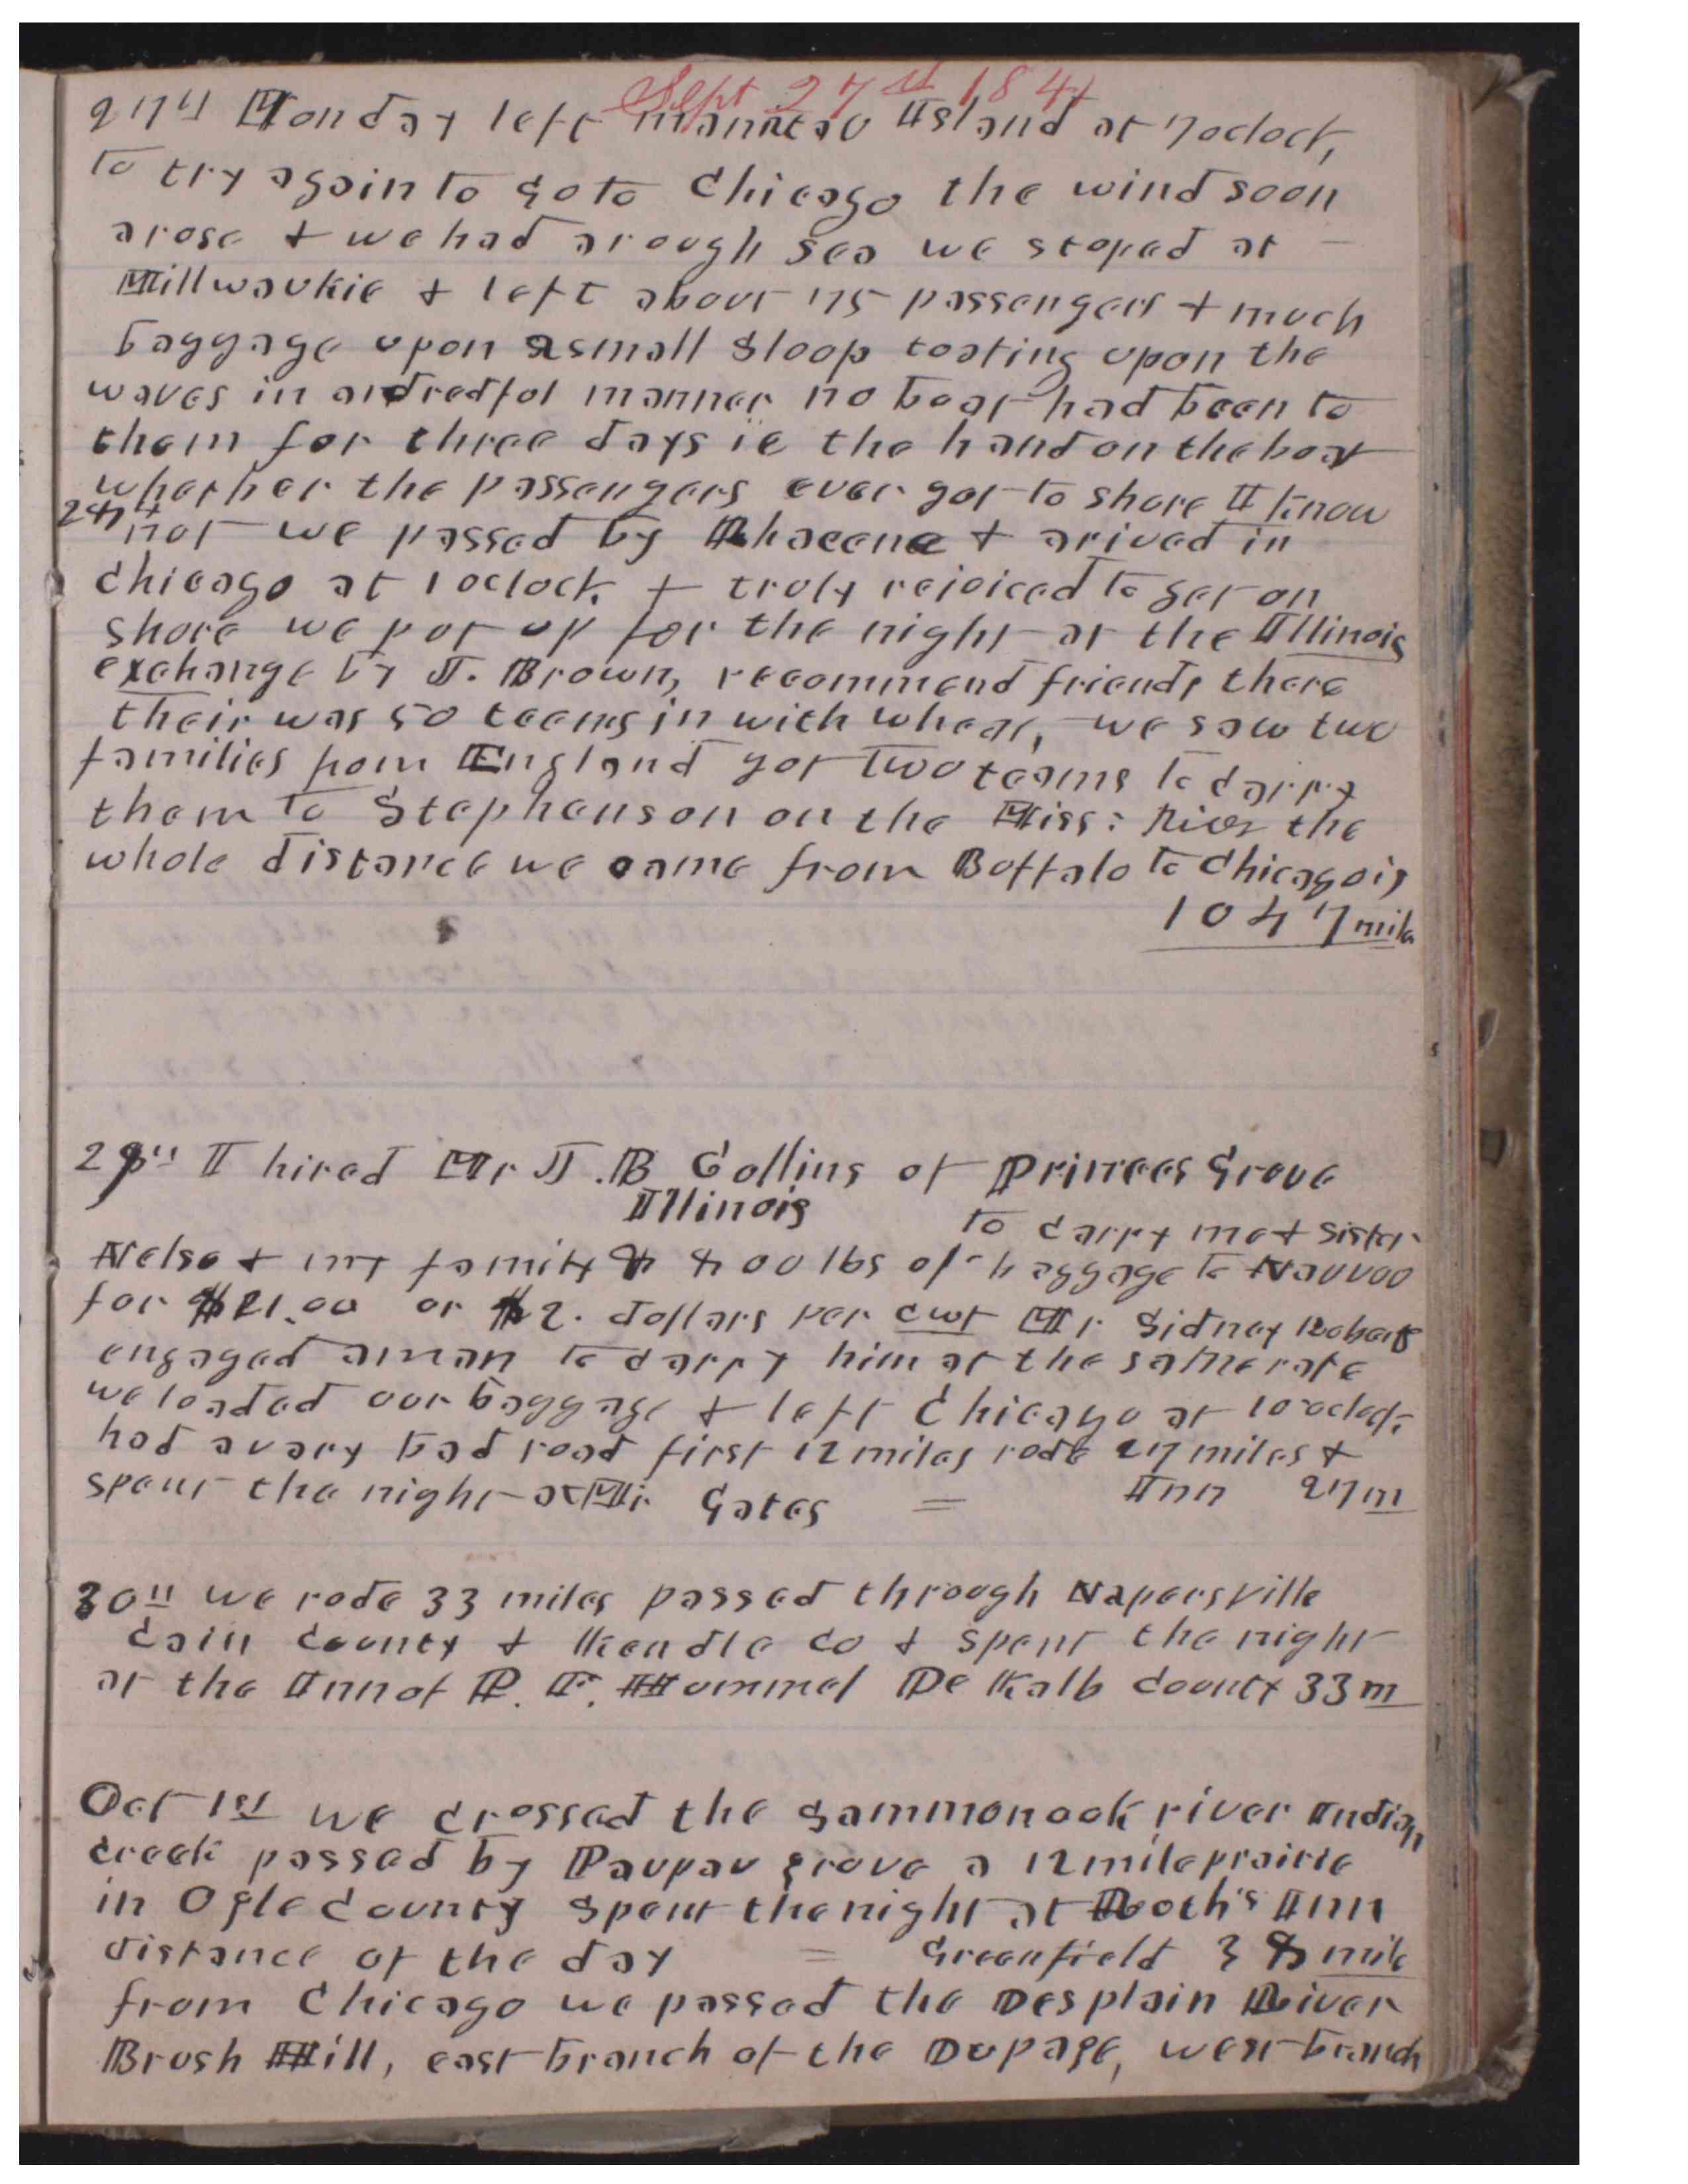 Sept 27th 1841
27th Monday left mannteau Island at 7 oclock,
to try again to go to Chicago the wind soon
arose & we had a rough sea we stoped at
Millwaukie & left about 75 passengers & much
baggage upon a small Sloop tosting upon the
waves in an dredful manner no boat had been to
them for three days ie the hand on the boat
whether the passengers ever got to shore I know
not we passed by Rhacene & arived in
Chicago at 1 oclock. & truly rejoiced to get on
shore we put up for the night at the Illinois
exchange by J. Brown, recommend friends there
their was 50 teems in with wheat, we saw two
families from England got two teams to carry
them to Stephenson on the Miss: River the
whole distance we came from Buffalo to Chicago is
1047 mile
29th I hired Mr J. B Collins of Princes Grove
Illinois
to carry me & Sister
Nelso & my family & 400 lbs of baggage to Nauvoo
for $21.00 or $2. dollars per cwt Mr Sidney Roberts
engaged a man to carry him at the same rate
we loaded our baggage & left Chicago at 10 oclock.
had a very bad road first 12 miles rode 27 miles &
spent the night at Mr Gates = Inn 27 m
30th we rode 33 miles passed through Napersville
Cain County & Kendle co & spent the night
at the Inn of P. F. Hummel De Kalb County 33 m
Oct 1st we crossed the Sammonook river Indian
creek passed by Paupau grove a 12 mile prairie
in Ogle County Spent the night at Rooth's Inn
distance of the day = Greenfield 38 mile
from Chicago we passed the Desplain River
Brush Hill, east branch of the Dupage, west branch